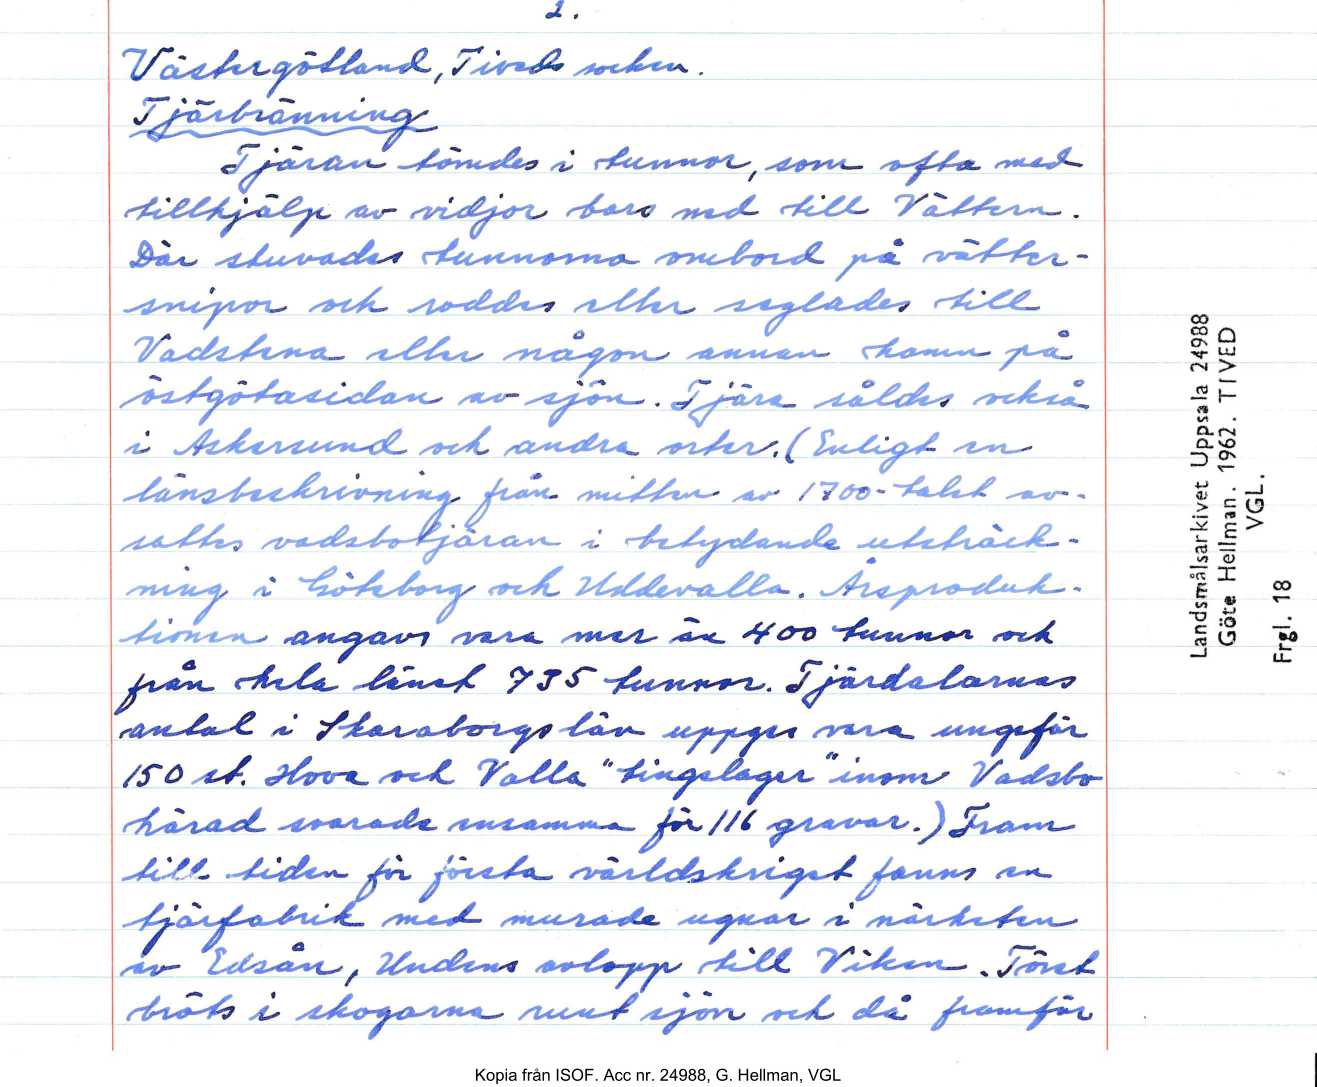 2.
Västergötland, Tiveds socken.
Tjärbränning
Tjäran tömdes i tunnor, som ofta med
tillhjälp av vidjor bars ned till Vättern.
Där stuvades tunnorna ombord på vätter-
snipor och roddes eller seglades till
Vadstena eller någon annan hamn på
östgötasidan av sjön. Tjära såldes också
i Askersund och andra orter. (Enligt en
länsbeskrivning från mitten av 1700-talet av-
sattes vadsbotjäran i betydande utsträck-
ning i Göteborg och Uddevalla. Årsproduk-
tionen angavs vara mer än 400 tunnor och
från hela länet 735 tunnor. Tjärdalarnas
antal i Skaraborgs län uppges vara ungefär
150 st. Hova och Valla "tingslager" inom Vadsbo
härad svarade ensamma för 116 gravar.) Fram
till tiden för första världskriget fanns en
tjärfabrik med murade ugnar i närheten
av Edsån, Undens avlopp till Viken. Törst
bröts i skogarna runt sjön och då framför
Landsmålsarkivet Uppsala 24988
Göte Hellman. 1962. TIVED
VGL.
Frgl. 18
Kopia från ISOF. Acc nr. 24988, G. Hellman, VGL